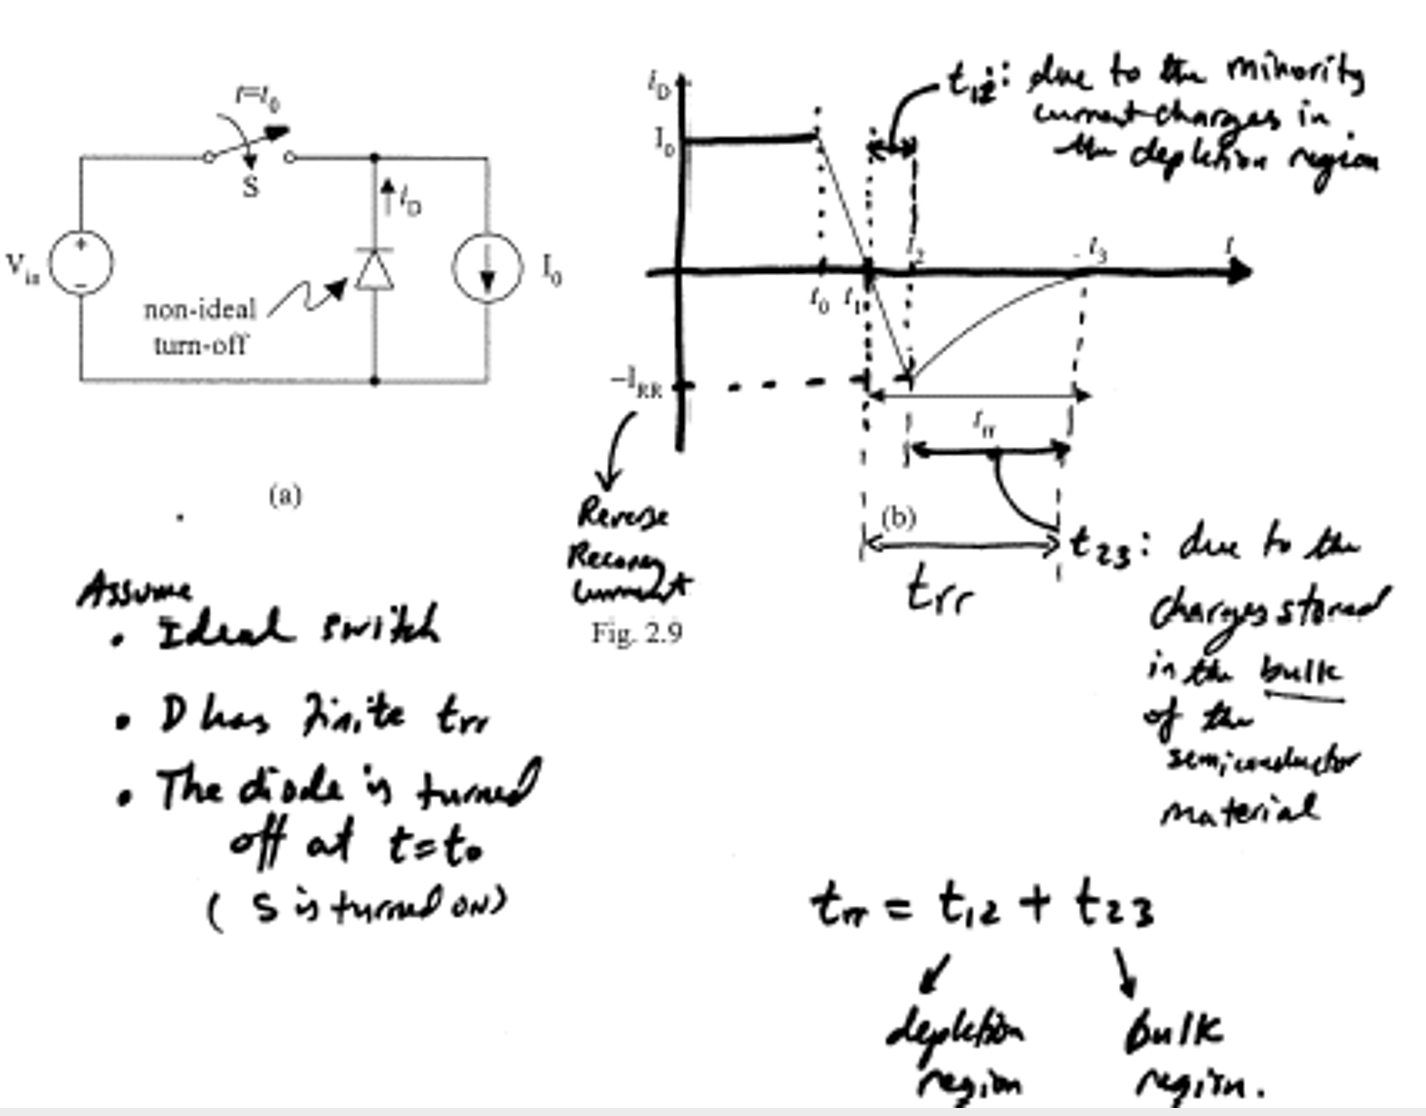 t=t0
S
iD
Vin
+
-
I0
non-ideal
turn-off
(a)
iD
I0
t12: due to the minority
current charges in
the depletion region
t2
t3
t
t0
t1
-IRR
trr
(b)
Reverse
Recovery
Current
trr
Fig. 2.9
t23: due to the
charges stored
in the bulk
of the
semiconductor
material
Assume
• Ideal switch
• D has finite trr
• The diode is turned
off at t=t0
(S is turned ON)
trr = t12 + t23
depletion
region
bulk
region.